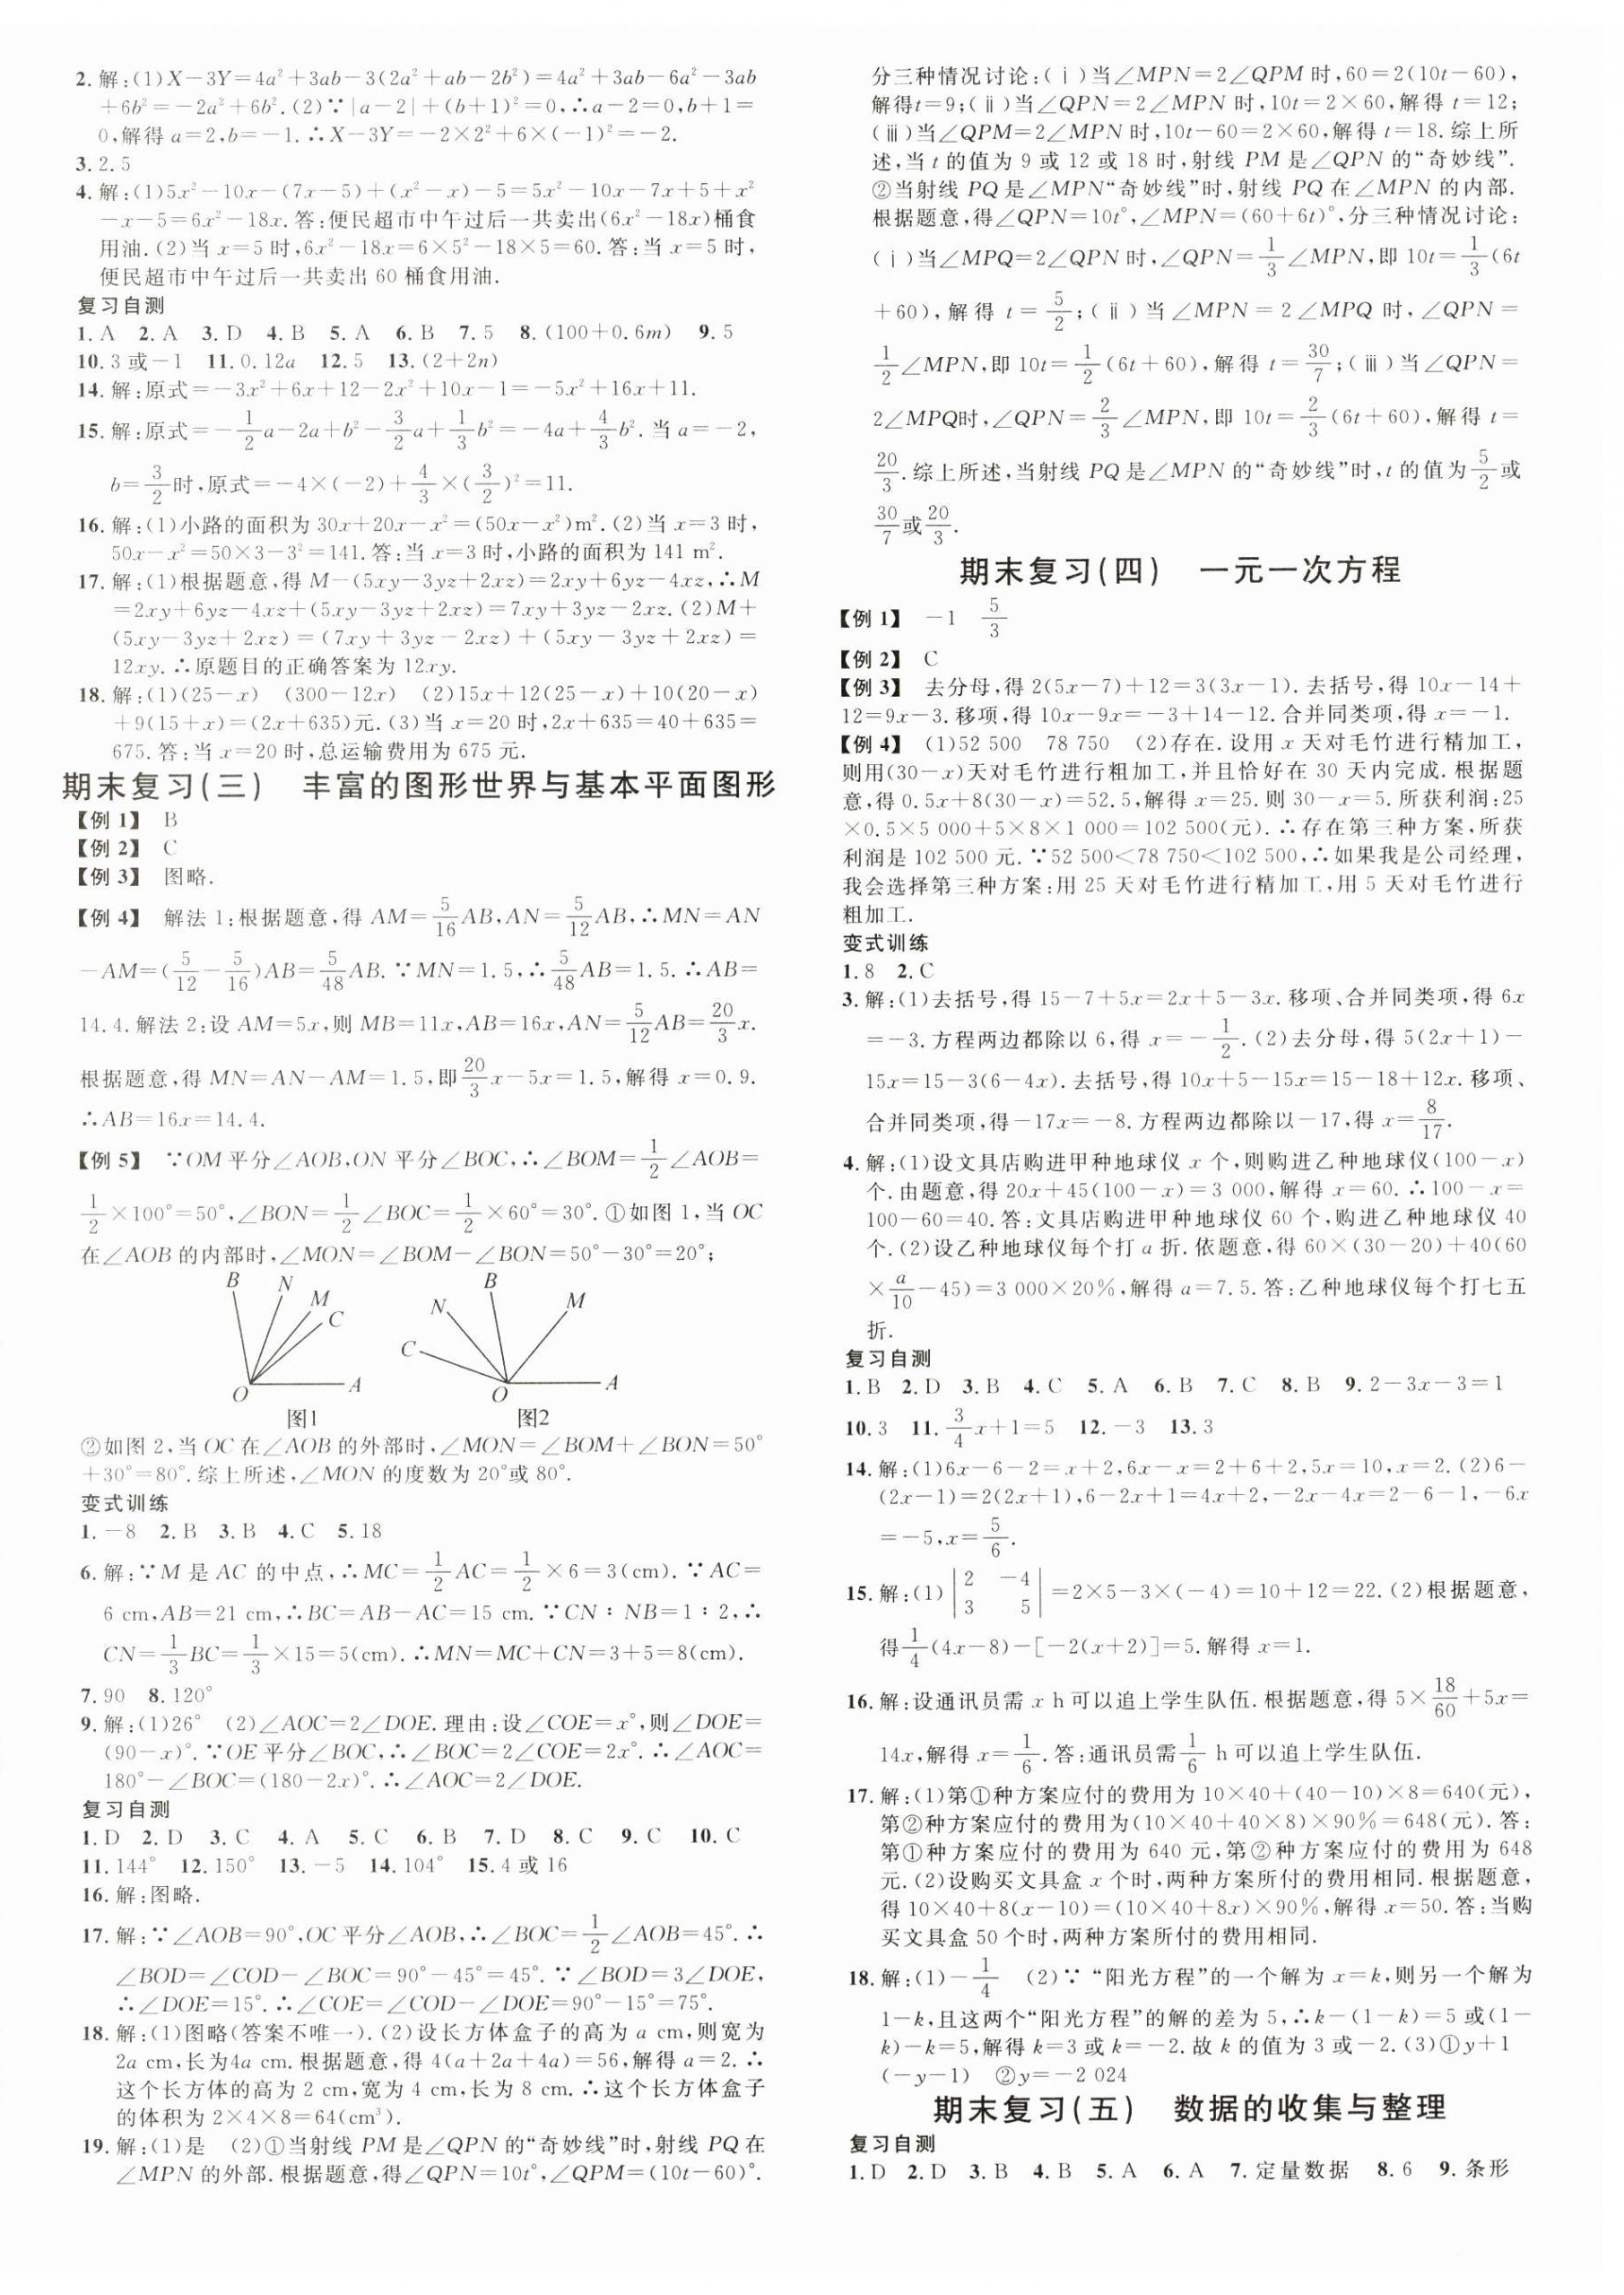 2.解:(1)X-3Y=4a²+3ab-3(2a²+ab-2b²)=4a²+3ab-6a²-3ab
+6b²=-2a²+6b².(2)∵|a-2|+(b+1)²=0,∴a-2=0,b+1=
0,解得a=2,b=-1.∴X-3Y=-2×2²+6×(-1)²=-2.
3.2.5
4.解:(1)5x²-10x-(7x-5)+(x²-x)-5=5x²-10x-7x+5+x²
-x-5=6x²-18x.答:便民超市中午过后一共卖出(6x²-18x)桶食
用油.(2)当x=5时,6x²-18x=6×5²-18×5=60.答:当x=5时,
便民超市中午过后一共卖出60桶食用油.
复习自测
1.A 2.A 3.D 4.B 5.A 6.B 7.5 8.(100+0.6m) 9.5
10.3或-1 11.0.12a 12.5 13.(2+2n)
14.解:原式=-3x²+6x+12-2x²+10x-1=-5x²+16x+11.
15.解:原式=-1/2a-2a+b²-3/2a+1/3b²=-4a+4/3b².当a=-2,
b=3/2时,原式=-4×(-2)+4/3×(3/2)²=11.
16.解:(1)小路的面积为30x+20x-x²=(50x-x²)m².(2)当x=3时,
50x-x²=50×3-3²=141.答:当x=3时,小路的面积为141 m².
17.解:(1)根据题意,得M-(5xy-3yz+2xz)=2xy+6yz-4xz,∴M
=2xy+6yz-4xz+(5xy-3yz+2xz)=7xy+3yz-2xz.(2)M+
(5xy-3yz+2xz)=(7xy+3yz-2xz)+(5xy-3yz+2xz)=
12xy.∴原题目的正确答案为12xy.
18.解:(1)(25-x) (300-12x) (2)15x+12(25-x)+10(20-x)
+9(15+x)=(2x+635)元.(3)当x=20时,2x+635=40+635=
675.答:当x=20时,总运输费用为675元.
期末复习(三) 丰富的图形世界与基本平面图形
【例1】 B
【例2】 C
【例3】 图略.
【例4】 解法1:根据题意,得AM=5/16AB,AN=5/12AB,∴MN=AN
-AM=(5/12-5/16)AB=5/48AB.∵MN=1.5,∴5/48AB=1.5.∴AB=
14.4.解法2:设AM=5x,则MB=11x,AB=16x,AN=5/12AB=20/3x.
根据题意,得MN=AN-AM=1.5,即20/3x-5x=1.5,解得x=0.9.
∴AB=16x=14.4.
【例5】 ∵OM平分∠AOB,ON平分∠BOC,∴∠BOM=1/2∠AOB=
1/2×100°=50°,∠BON=1/2∠BOC=1/2×60°=30°.①如图1,当OC
在∠AOB的内部时,∠MON=∠BOM-∠BON=50°-30°=20°;
B N M C O A
图1
B N M C O A
图2
②如图2,当OC在∠AOB的外部时,∠MON=∠BOM+∠BON=50°
+30°=80°.综上所述,∠MON的度数为20°或80°.
变式训练
1.-8 2.B 3.B 4.C 5.18
6.解:∵M是AC的中点,∴MC=1/2AC=1/2×6=3(cm).∵AC=
6 cm,AB=21 cm,∴BC=AB-AC=15 cm.∵CN∶NB=1∶2,∴
CN=1/3BC=1/3×15=5(cm).∴MN=MC+CN=3+5=8(cm).
7.90 8.120°
9.解:(1)26° (2)∠AOC=2∠DOE.理由:设∠COE=x°,则∠DOE=
(90-x)°.∵OE平分∠BOC,∴∠BOC=2∠COE=2x°.∴∠AOC=
180°-∠BOC=(180-2x)°.∴∠AOC=2∠DOE.
复习自测
1.D 2.D 3.C 4.A 5.C 6.B 7.D 8.C 9.C 10.C
11.144° 12.150° 13.-5 14.104° 15.4或16
16.解:图略.
17.解:∵∠AOB=90°,OC平分∠AOB,∴∠BOC=1/2∠AOB=45°.∴
∠BOD=∠COD-∠BOC=90°-45°=45°.∵∠BOD=3∠DOE,
∴∠DOE=15°.∴∠COE=∠COD-∠DOE=90°-15°=75°.
18.解:(1)图略(答案不唯一).(2)设长方体盒子的高为a cm,则宽为
2a cm,长为4a cm.根据题意,得4(a+2a+4a)=56,解得a=2.∴
这个长方体的高为2 cm,宽为4 cm,长为8 cm.∴这个长方体盒子
的体积为2×4×8=64(cm³).
19.解:(1)是 (2)①当射线PM是∠QPN的“奇妙线”时,射线PQ在
∠MPN的外部.根据题意,得∠QPN=10t°,∠QPM=(10t-60)°.
分三种情况讨论:(ⅰ)当∠MPN=2∠QPM时,60=2(10t-60),
解得t=9;(ⅱ)当∠QPN=2∠MPN时,10t=2×60,解得t=12;
(ⅲ)当∠QPM=2∠MPN时,10t-60=2×60,解得t=18.综上所
述,当t的值为9或12或18时,射线PM是∠QPN的“奇妙线”.
②当射线PQ是∠MPN“奇妙线”时,射线PQ在∠MPN的内部.
根据题意,得∠QPN=10t°,∠MPN=(60+6t)°,分三种情况讨论:
(ⅰ)当∠MPQ=2∠QPN时,∠QPN=1/3∠MPN,即10t=1/3(6t
+60),解得t=5/2;(ⅱ)当∠MPN=2∠MPQ时,∠QPN=
1/2∠MPN,即10t=1/2(6t+60),解得t=30/7;(ⅲ)当∠QPN=
2∠MPQ时,∠QPN=2/3∠MPN,即10t=2/3(6t+60),解得t=
20/3.综上所述,当射线PQ是∠MPN的“奇妙线”时,t的值为5/2或
30/7或20/3.
期末复习(四) 一元一次方程
【例1】 -1 5/3
【例2】 C
【例3】 去分母,得2(5x-7)+12=3(3x-1).去括号,得10x-14+
12=9x-3.移项,得10x-9x=-3+14-12.合并同类项,得x=-1.
【例4】 (1)52 500 78 750 (2)存在.设用x天对毛竹进行精加工,
则用(30-x)天对毛竹进行粗加工,并且恰好在30天内完成.根据题
意,得0.5x+8(30-x)=52.5,解得x=25.则30-x=5.所获利润:25
×0.5×5 000+5×8×1 000=102 500(元).∴存在第三种方案,所获
利润是102 500元.∵52 500<78 750<102 500,∴如果我是公司经理,
我会选择第三种方案:用25天对毛竹进行精加工,用5天对毛竹进行
粗加工.
变式训练
1.8 2.C
3.解:(1)去括号,得15-7+5x=2x+5-3x.移项、合并同类项,得6x
=-3.方程两边都除以6,得x=-1/2.(2)去分母,得5(2x+1)-
15x=15-3(6-4x).去括号,得10x+5-15x=15-18+12x.移项、
合并同类项,得-17x=-8.方程两边都除以-17,得x=8/17.
4.解:(1)设文具店购进甲种地球仪x个,则购进乙种地球仪(100-x)
个.由题意,得20x+45(100-x)=3 000,解得x=60.∴100-x=
100-60=40.答:文具店购进甲种地球仪60个,购进乙种地球仪40
个.(2)设乙种地球仪每个打a折.依题意,得60×(30-20)+40(60
×a/10-45)=3 000×20%,解得a=7.5.答:乙种地球仪每个打七五
折.
复习自测
1.B 2.D 3.B 4.C 5.A 6.B 7.C 8.B 9.2-3x-3=1
10.3 11.3/4x+1=5 12.-3 13.3
14.解:(1)6x-6-2=x+2,6x-x=2+6+2,5x=10,x=2.(2)6-
(2x-1)=2(2x+1),6-2x+1=4x+2,-2x-4x=2-6-1,-6x
=-5,x=5/6.
15.解:(1)|2 -4; 3 5|=2×5-3×(-4)=10+12=22.(2)根据题意,
得1/4(4x-8)-[-2(x+2)]=5.解得x=1.
16.解:设通讯员需x h可以追上学生队伍.根据题意,得5×18/60+5x=
14x,解得x=1/6.答:通讯员需1/6 h可以追上学生队伍.
17.解:(1)第①种方案应付的费用为10×40+(40-10)×8=640(元),
第②种方案应付的费用为(10×40+40×8)×90%=648(元).答:
第①种方案应付的费用为640元,第②种方案应付的费用为648
元.(2)设购买文具盒x个时,两种方案所付的费用相同.根据题意,
得10×40+8(x-10)=(10×40+8x)×90%,解得x=50.答:当购
买文具盒50个时,两种方案所付的费用相同.
18.解:(1)-1/4 (2)∵“阳光方程”的一个解为x=k,则另一个解为
1-k,且这两个“阳光方程”的解的差为5,∴k-(1-k)=5或(1-
k)-k=5,解得k=3或k=-2.故k的值为3或-2.(3)①y+1
(-y-1) ②y=-2 024
期末复习(五) 数据的收集与整理
复习自测
1.D 2.D 3.B 4.B 5.A 6.A 7.定量数据 8.6 9.条形